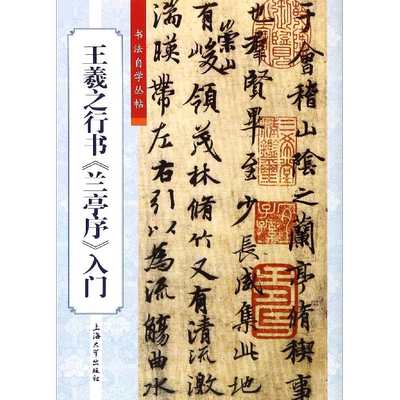 书法自学丛帖
王羲之行书《兰亭序》入门
上海大学出版社
于會稽山陰之蘭亭脩禊事
也羣賢畢至少長咸集此地
崇山
有峻領茂林脩竹又有清流激
湍暎帶左右引以為流觴曲水
三希堂